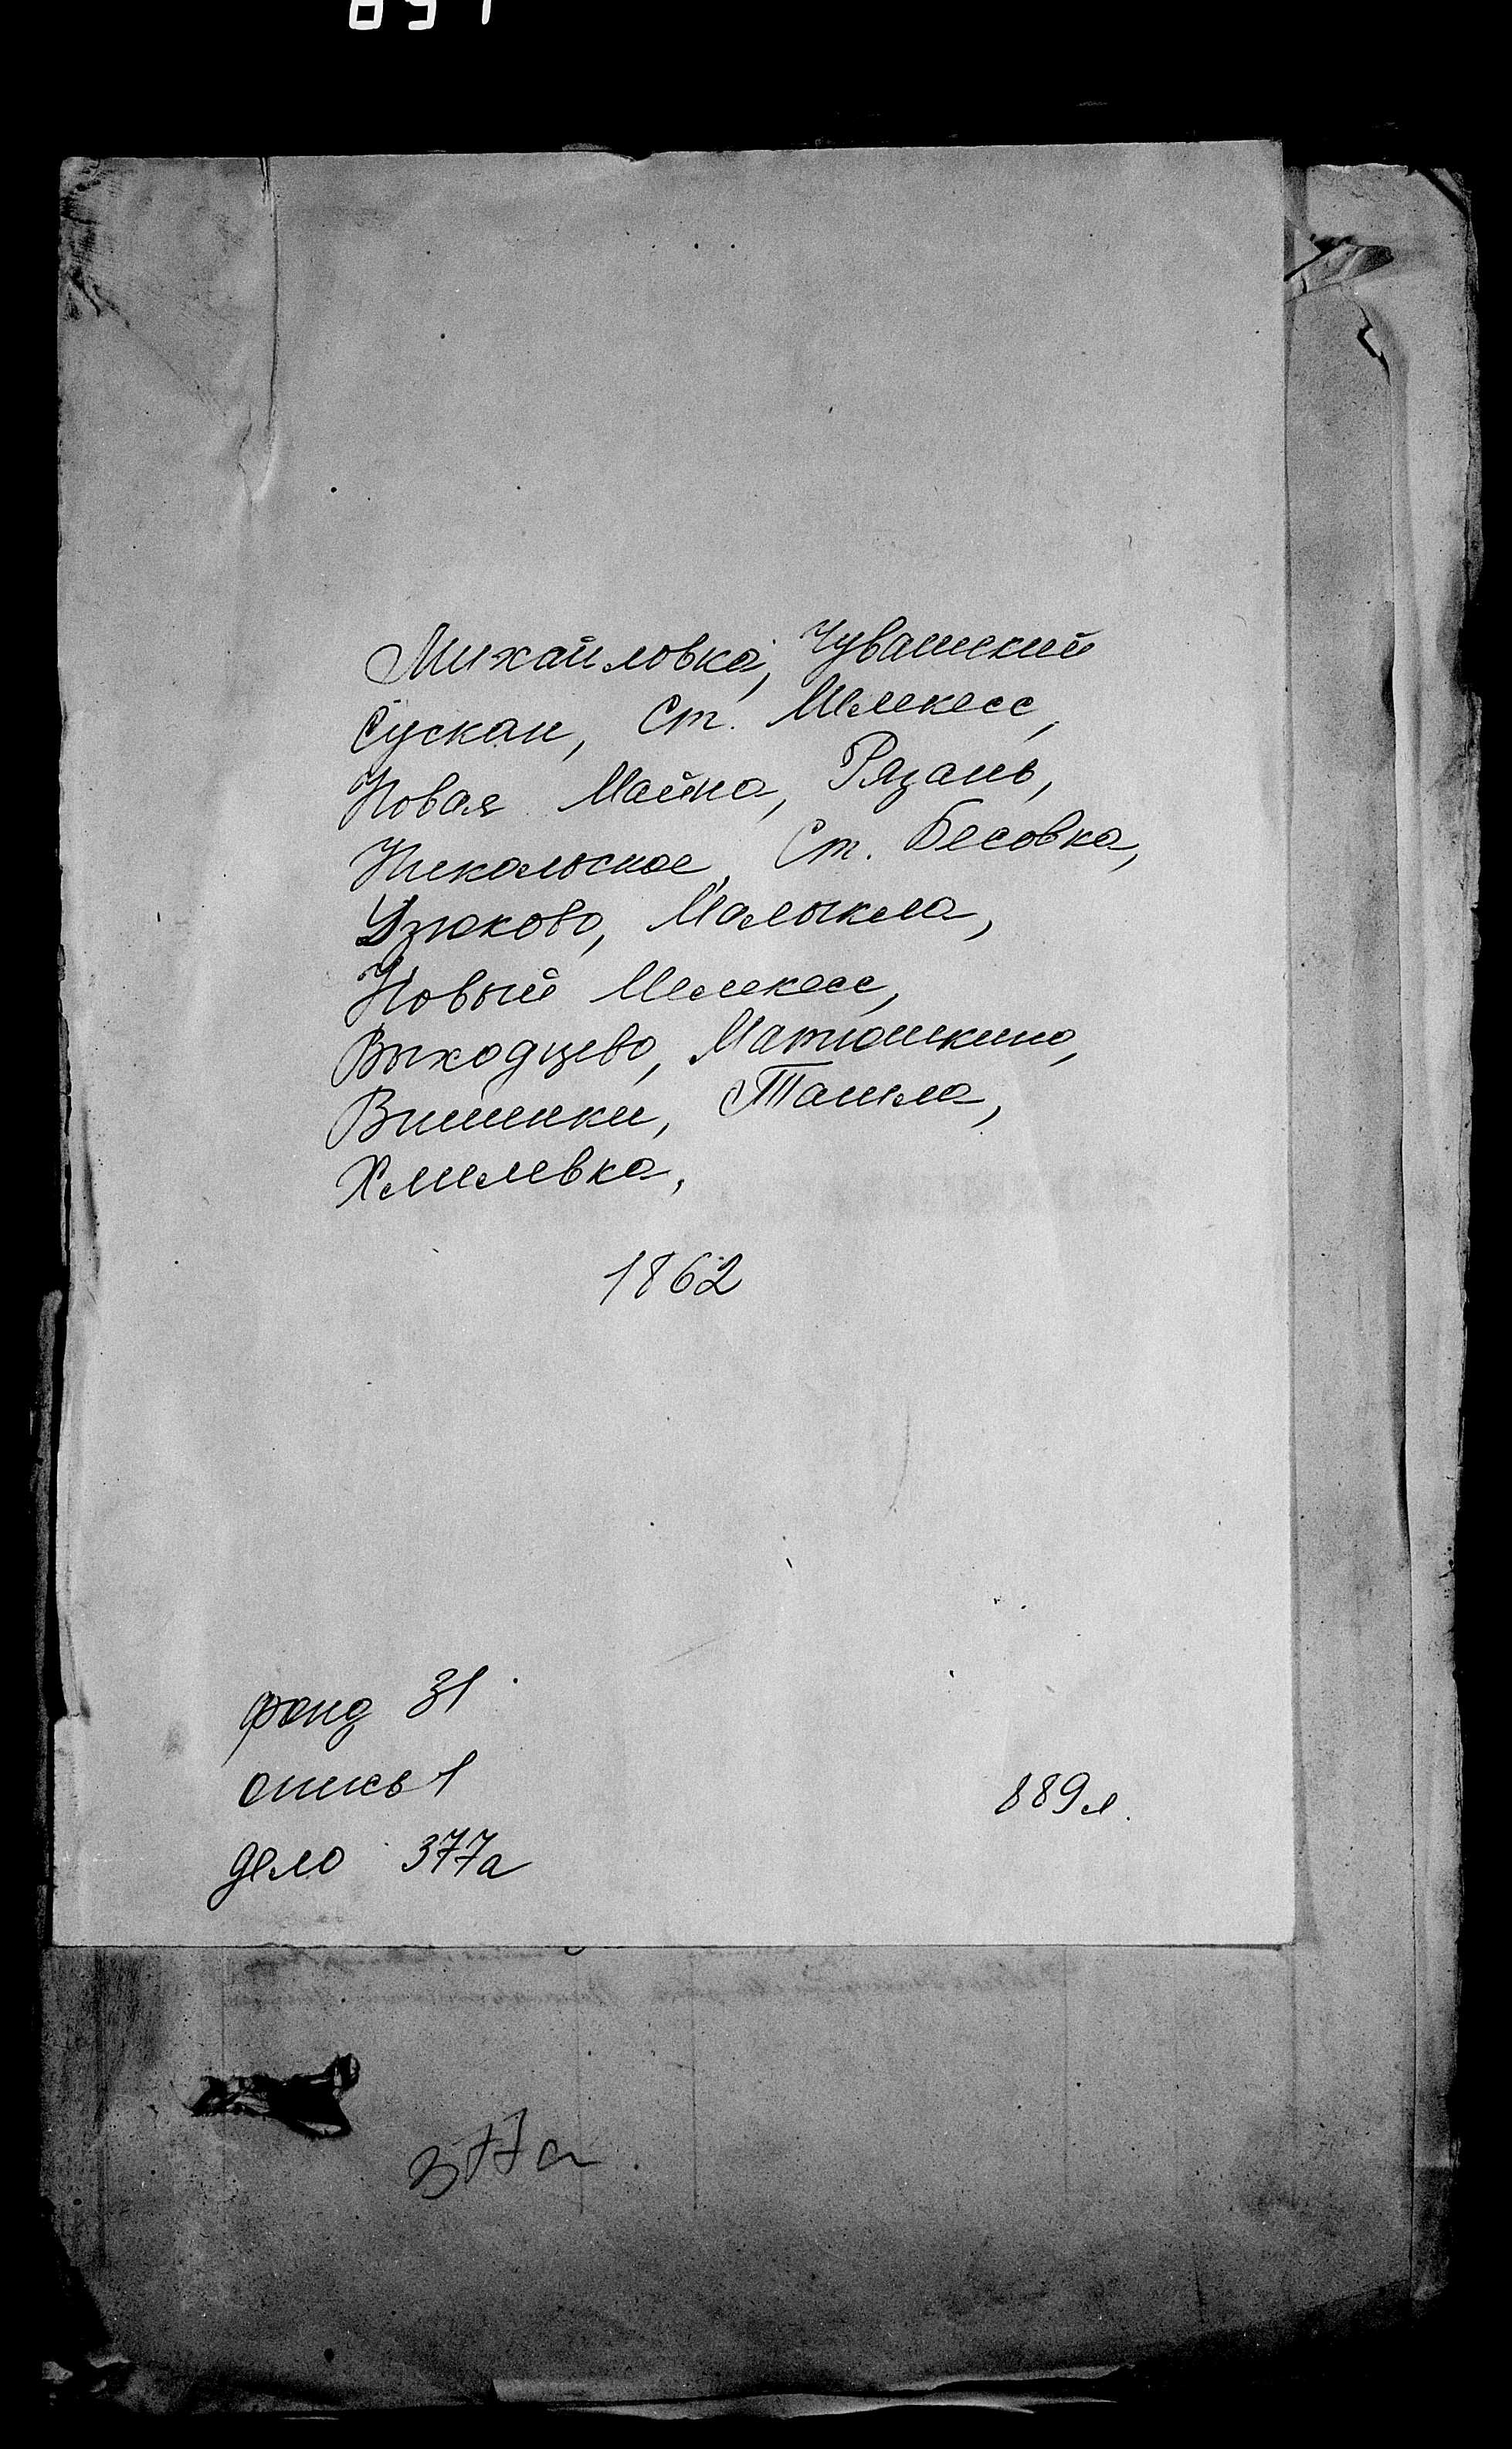 Михайловка, Чувашский
Сускан, Ст. Мелекесс,
Новая Майна, Рязань,
Никольское, Ст. Бесовка,
Дзюково, Малыкла,
Новый Мелекесс,
Выходцево, Матюшкино,
Вишенки, Ташла,
Хмелевка,
1862
фонд 31
опись 1
889л.
дело 377а
377а.